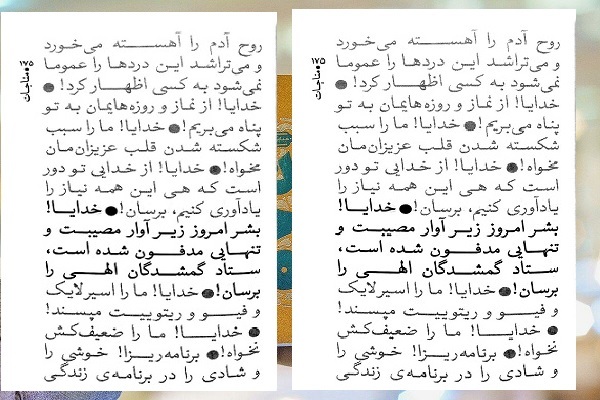 مناجات
روح آدم را آهسته می‌خورد
و می‌تراشد این دردها را عموما
نمی‌شود به کسی اظهار کرد! ●
خدایا! از نماز و روزه‌هایمان به تو
پناه می‌بریم! ● خدایا! ما را سبب
شکسته شدن قلب عزیزان‌مان
مخواه! ● خدایا! از خدایی تو دور
است که هی این همه نیاز را
یادآوری کنیم، برسان! ● خدایا!
بشر امروز زیر آوار مصیبت و
تنهایی مدفون شده است،
ستاد گمشدگان الهی را
برسان! ● خدایا! ما را اسیر لایک
و فیو و ریتوییت مپسند!
● خدایا! ما را ضعیف‌کش
نخواه! ● برنامه‌ریزا! خوشی را
و شادی را در برنامه‌ی زندگی
مناجات
روح آدم را آهسته می‌خورد
و می‌تراشد این دردها را عموما
نمی‌شود به کسی اظهار کرد! ●
خدایا! از نماز و روزه‌هایمان به تو
پناه می‌بریم! ● خدایا! ما را سبب
شکسته شدن قلب عزیزان‌مان
مخواه! ● خدایا! از خدایی تو دور
است که هی این همه نیاز را
یادآوری کنیم، برسان! ● خدایا!
بشر امروز زیر آوار مصیبت و
تنهایی مدفون شده است،
ستاد گمشدگان الهی را
برسان! ● خدایا! ما را اسیر لایک
و فیو و ریتوییت مپسند!
● خدایا! ما را ضعیف‌کش
نخواه! ● برنامه‌ریزا! خوشی را
و شادی را در برنامه‌ی زندگی